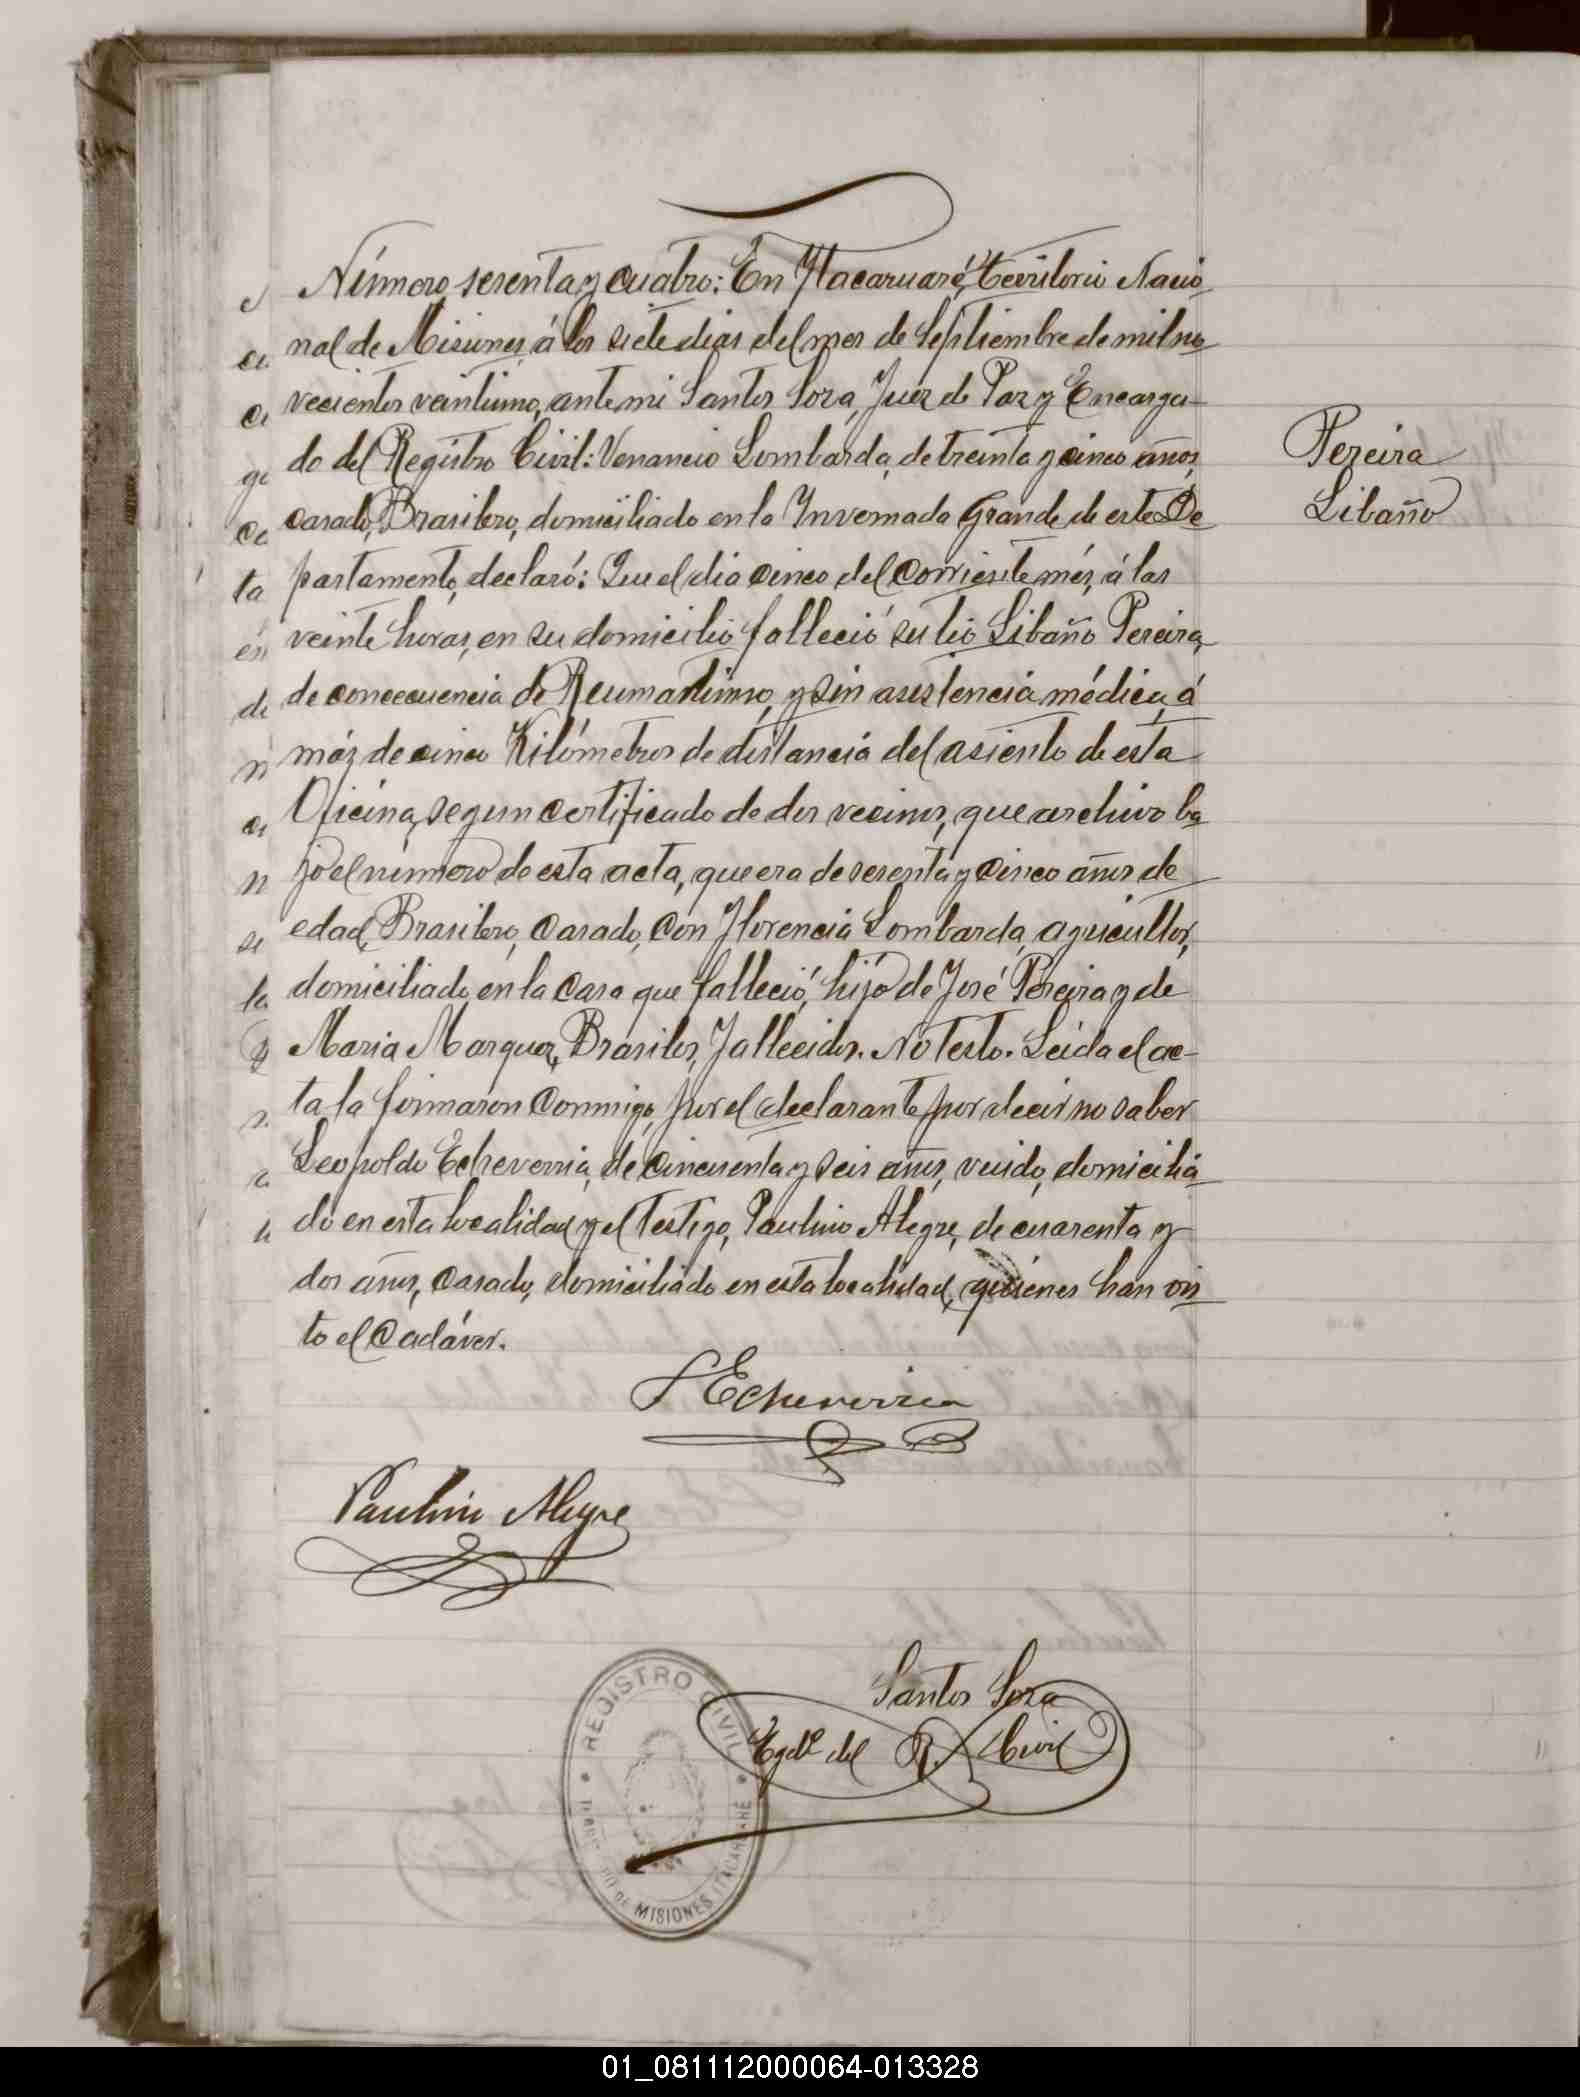 Número sesenta y cuatro: En Ytacaruaré, Territorio Nacio
nal de Misiones, á los siete dias del mes de Septiembre de mil no
vecientos veintiuno, ante mi Santos Sosa, Juez de Paz y Encarga-
do del Registro Civil: Venancio Lombarda, de treinta y cinco años,
casado, Brasilero, domiciliado en la Invernada Grande de este De
partamento, declaró: Que el dia cinco del corriente més, á las
veinte horas, en su domicilio falleció su tio Libaño Pereira,
de concecuencia de Reumatismo, y sin asistencia médica, á
más de cinco Kilómetros de distancia del asiento de esta
Oficina, segun certificado de dos vecinos, que archivo ba
jo el número de esta acta, que era de sesenta y cinco años de
edad, Brasilero, casado, con Florencia Lombarda, agricultor,
domiciliado en la casa que falleció, hijo de José Pereira y de
Maria Marques, Brasileros, fallecidos. No testo. Leida el ac-
ta la firmaron conmigo, por el declarante por decir no saber
Leopoldo Echeverria, de cincuenta y seis años, viudo, domicilia
do en esta localidad y el testigo, Paulino Alegre, de cuarenta y
dos años, casado, domiciliado en esta localidad, quiénes han vis
to el Cadáver.
Pereira
Libaño
L Echeverria
Paulino Alegre
Santos Sosa
Egdo. del R. Civil
REGISTRO CIVIL
MISIONES ITACARUARÉ
01_081112000064-013328